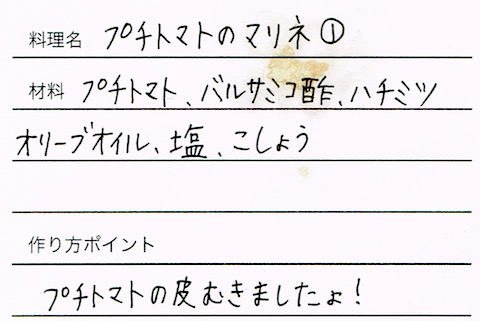 料理名 プチトマトのマリネ①
材料 プチトマト、バルサミコ酢、ハチミツ
オリーブオイル、塩、こしょう
作り方ポイント
プチトマトの皮むきましたょ!